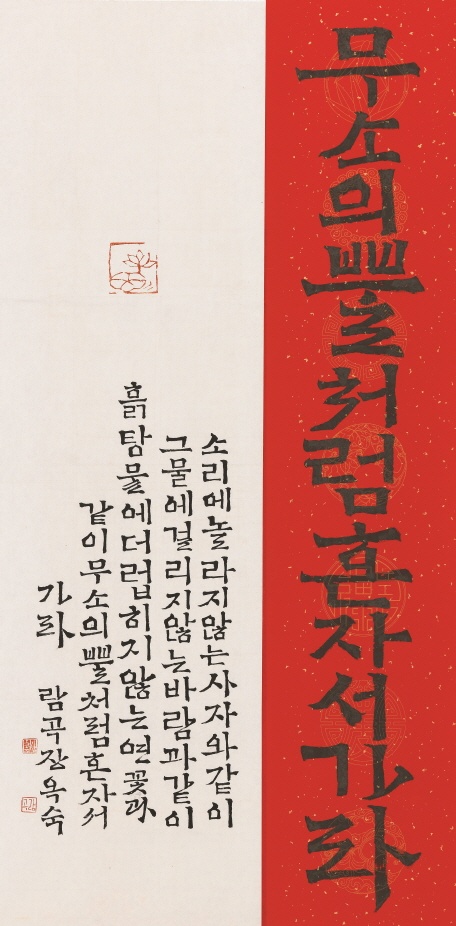 무소의뿔처럼혼자서가라
소리에놀라지않는사자와같이
그물에걸리지않는바람과같이
흙탕물에더럽히지않는연꽃과
같이무소의뿔처럼혼자서
가라 람곡장옥숙